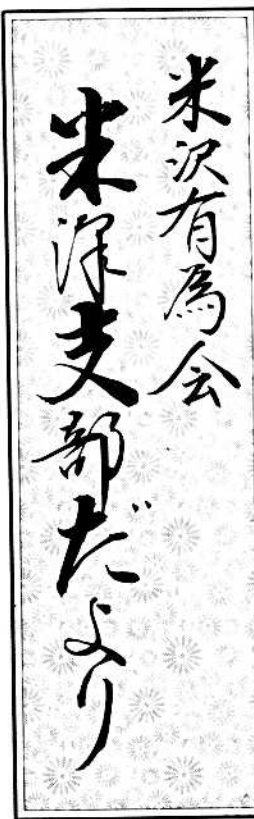 米沢有為会
米澤支部だより